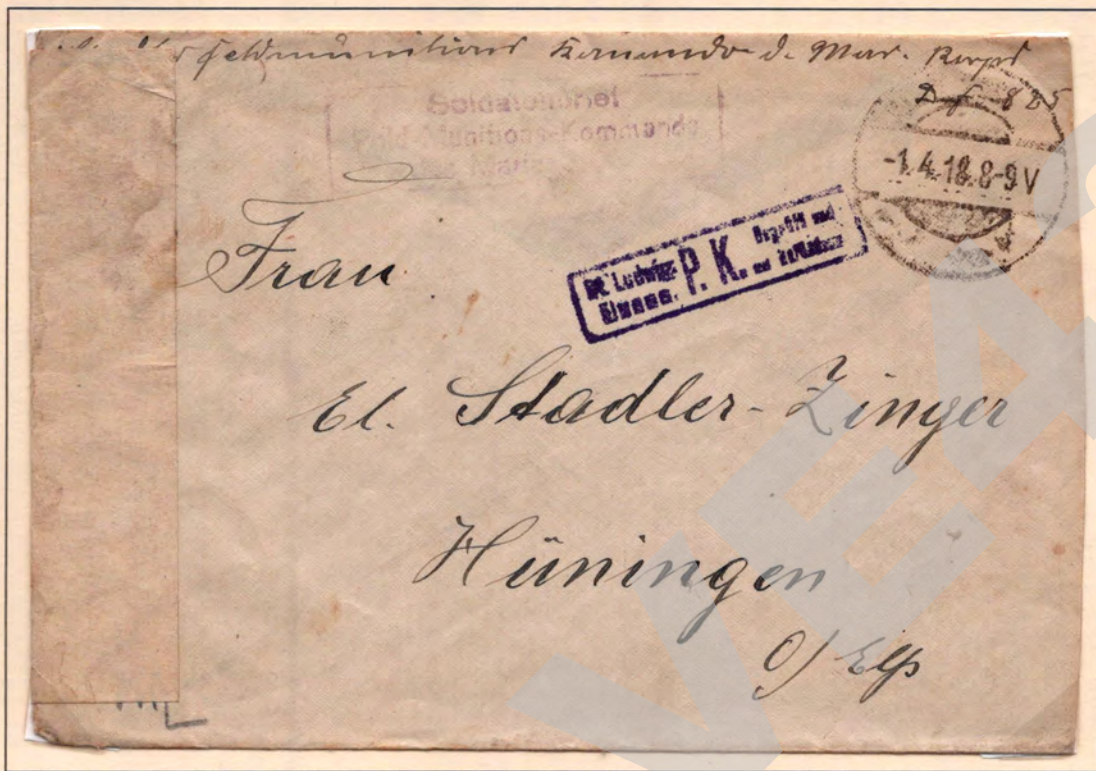 Feldmunitions Komando d. Mar. Korps
D. f. 825
Soldatenbrief
Feld-Munitions-Kommando
Marine
-1.4.18.8-9V
St. Ludwig-
Elsass.
P. K.
Geprüft und
zu
Frau
El. Stadler-Zinger
Hüningen
O/Els